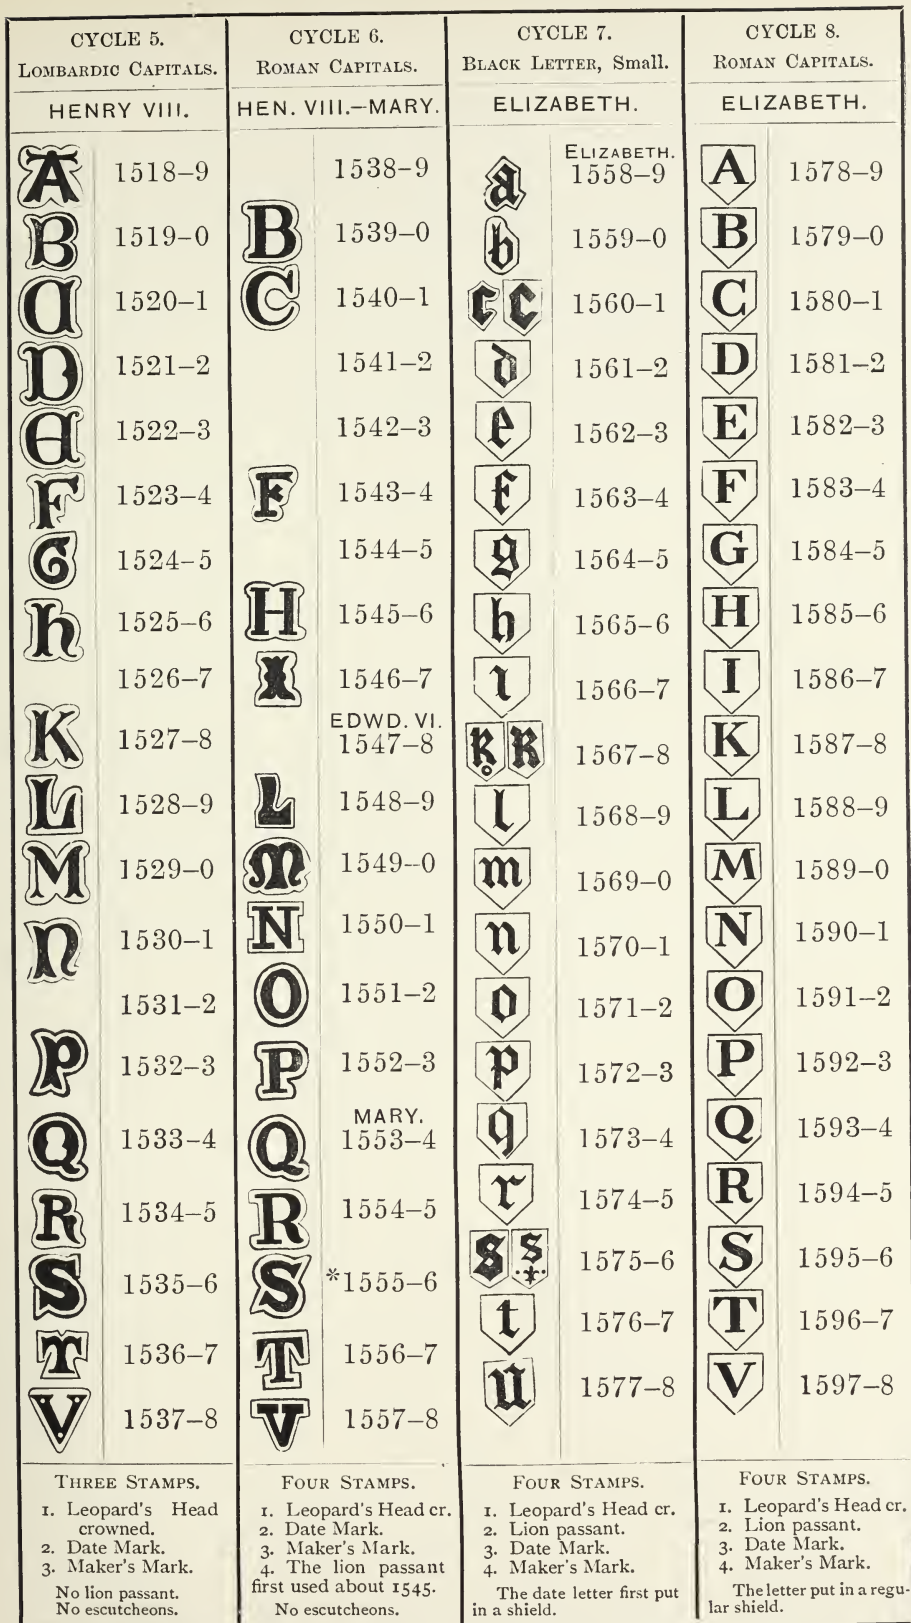 CYCLE 5.
LOMBARDIC CAPITALS.
HENRY VIII.
A 1518–9
B 1519–0
C 1520–1
D 1521–2
E 1522–3
F 1523–4
G 1524–5
h 1525–6
1526–7
K 1527–8
L 1528–9
M 1529–0
n 1530–1
1531–2
P 1532–3
Q 1533–4
R 1534–5
S 1535–6
T 1536–7
V 1537–8
THREE STAMPS.
1. Leopard's Head
crowned.
2. Date Mark.
3. Maker's Mark.
No lion passant.
No escutcheons.
CYCLE 6.
ROMAN CAPITALS.
HEN. VIII.–MARY.
1538–9
B 1539–0
C 1540–1
1541–2
1542–3
F 1543–4
1544–5
H 1545–6
I 1546–7
EDWD. VI.
1547–8
L 1548–9
M 1549–0
N 1550–1
O 1551–2
P 1552–3
MARY.
Q 1553–4
R 1554–5
S *1555–6
T 1556–7
V 1557–8
FOUR STAMPS.
1. Leopard's Head cr.
2. Date Mark.
3. Maker's Mark.
4. The lion passant
first used about 1545.
No escutcheons.
CYCLE 7.
BLACK LETTER, Small.
ELIZABETH.
ELIZABETH.
a 1558–9
b 1559–0
c c 1560–1
d 1561–2
e 1562–3
f 1563–4
g 1564–5
h 1565–6
i 1566–7
k k 1567–8
l 1568–9
m 1569–0
n 1570–1
o 1571–2
p 1572–3
q 1573–4
r 1574–5
s s 1575–6
t 1576–7
u 1577–8
FOUR STAMPS.
1. Leopard's Head cr.
2. Lion passant.
3. Date Mark.
4. Maker's Mark.
The date letter first put
in a shield.
CYCLE 8.
ROMAN CAPITALS.
ELIZABETH.
A 1578–9
B 1579–0
C 1580–1
D 1581–2
E 1582–3
F 1583–4
G 1584–5
H 1585–6
I 1586–7
K 1587–8
L 1588–9
M 1589–0
N 1590–1
O 1591–2
P 1592–3
Q 1593–4
R 1594–5
S 1595–6
T 1596–7
V 1597–8
FOUR STAMPS.
1. Leopard's Head cr.
2. Lion passant.
3. Date Mark.
4. Maker's Mark.
The letter put in a regu-
lar shield.